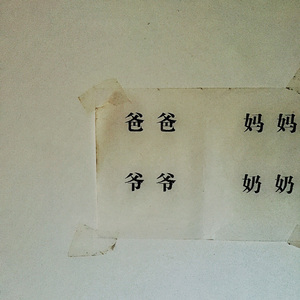 爸爸 妈妈
爷爷 奶奶